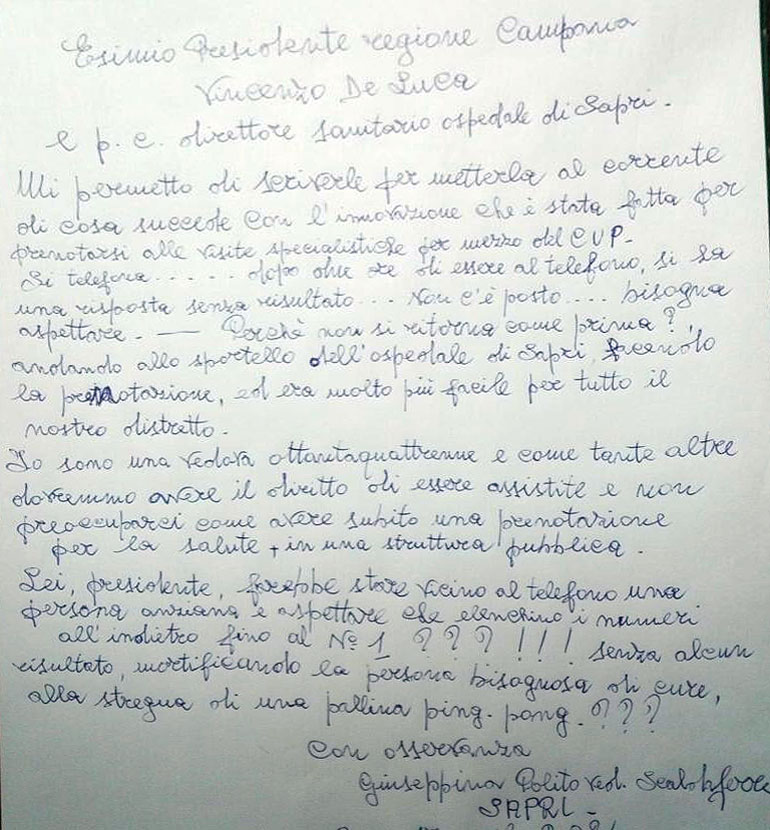 Esimio Presidente regione Campania
Vincenzo De Luca
e p. c. direttore sanitario ospedale di Sapri.
Mi permetto di scriverle per metterla al corrente
di cosa succede con l'innovazione che è stata fatta per
prenotarsi alle visite specialistiche per mezzo del CUP-
Si telefona..... dopo due ore di essere al telefono, si ha
una risposta senza risultato... Non c'è posto.... bisogna
aspettare. — Perchè non si ritorna come prima?,
andando allo sportello dell'ospedale di Sapri, facendo
la prenotazione, ed era molto più facile per tutto il
nostro distretto.
Io sono una vedova ottantaquattrenne e come tante altre
dovremmo avere il diritto di essere assistite e non
preoccuparci come avere subito una prenotazione
per la salute + in una struttura pubblica.
Lei, presidente, farebbe stare vicino al telefono una
persona anziana e aspettare che elenchino i numeri
all'indietro fino al N° 1 ??? !!! senza alcun
risultato, mortificando la persona bisognosa di cure,
alla stregua di una pallina ping. pong. ???
Con osservanza
Giuseppina Polito ved.
SAPRI-